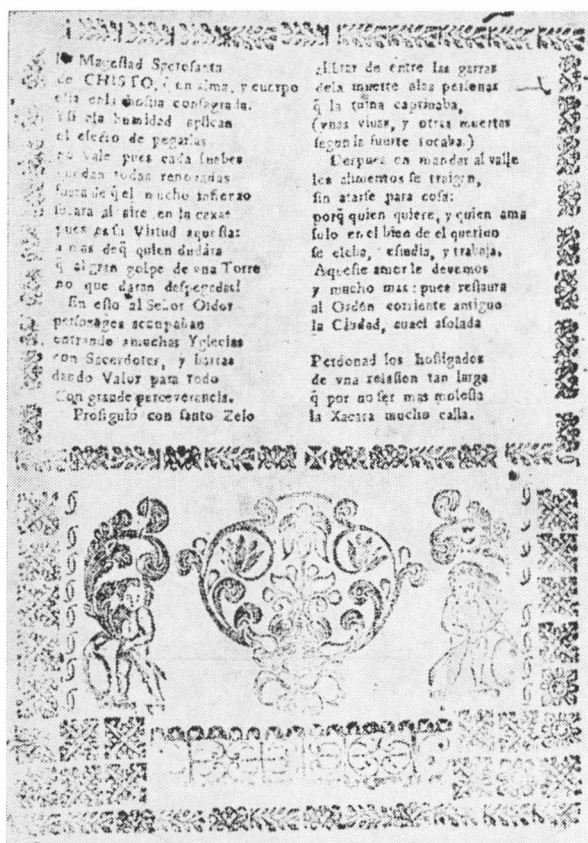 Magestad Sacrosanta
de CHISTO, q̃ en alma, y cuerpo
esta en la hostia consagrada.
Y si a la humidad aplican
el efecto de pegarlas
no vale pues cada Iuebes
quedan todas renobadas
fuera de q̃ el mucho
al aire en la caxa
pues Virtud aquesta:
a mas deq̃ quien dudára
q̃ al gran golpe de vna Torre
no que daran despegadas!
En esto al Señor Oidor
personages acompañan
entrando amuchas Yglecias
con Sacerdotes, y
dando Valor para todo
Con grande perceverancia.
Prosiguió con santo Zelo
de entre las garras
dela muerte alas personas
q̃ la ruina captiuaba,
(vnas viuas, y otras muertas
segun la suerte tocaba.)
Despues en mandar al valle
los alimentos se traigan,
sin atarse para cosa:
porq̃ quien quiere, y quien ama
solo en el bien de el querido
se eleba, estudia, y trabaja.
Aqueste amor le devemos
y mucho mas: pues restaura
al Ordén corriente antiguo
la Ciudad, asolada
Perdonad los hostigados
de vna relasion tan larga
q̃ por no ser mas molesta
la Xacara mucho calla.